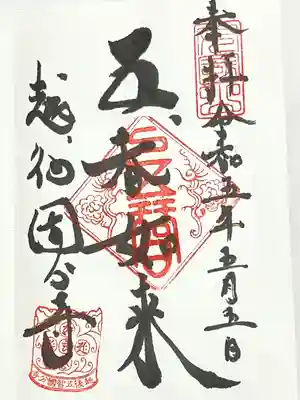 奉拝 令和五年五月五日
五智如来
越後国分寺